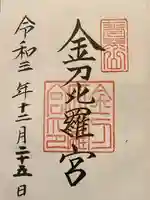 金刀比羅宮
令和三年十二月二十五日